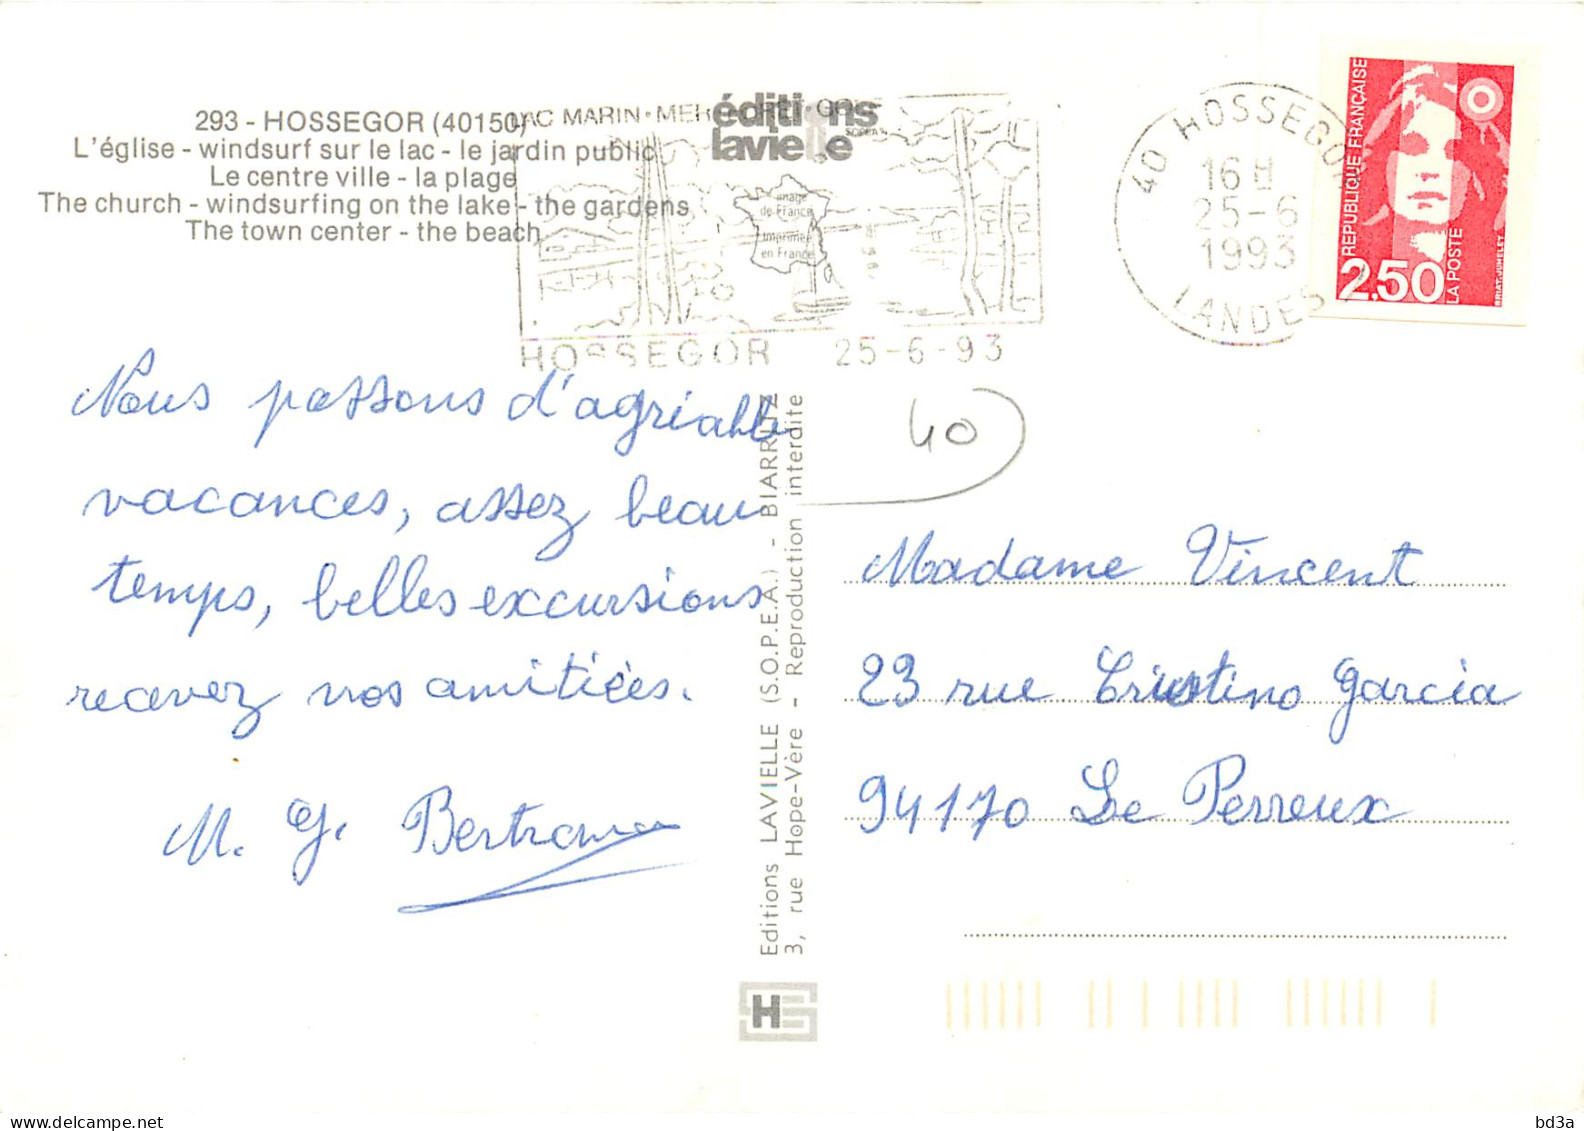 293 - HOSSEGOR (40150)
L'église - windsurf sur le lac - le jardin public
Le centre ville - la plage
The church - windsurfing on the lake - the gardens
The town center - the beach
éditions
lavielle
LAC MARIN • MER
image
de France
imprimée
en France
HOSSEGOR 25-6-93
40 HOSSEGOR
16 H
25-6
1993
LANDES
RÉPUBLIQUE FRANÇAISE
2,50
LA POSTE
BRIAT.JUMELET
Nous passons d'agréable
vacances, assez beau
temps, belles excursions
recevez nos amitiées.
M. G.
40
Madame Vincent
23 rue Cristino Garcia
94170 Le Perreux
Editions LAVIELLE (S.O.P.E.A.) - BIARRITZ
3, rue Hope-Vère - Reproduction interdite
H
bd3a